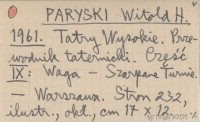 PARYSKI Witold H.
1961. Tatry Wysokie. Prze-
wodnik taternicki. Część
IX: Waga – Szarpane Turnie.
– Warszawa. Stron 232,
ilustr., okł., cm 17 x 12